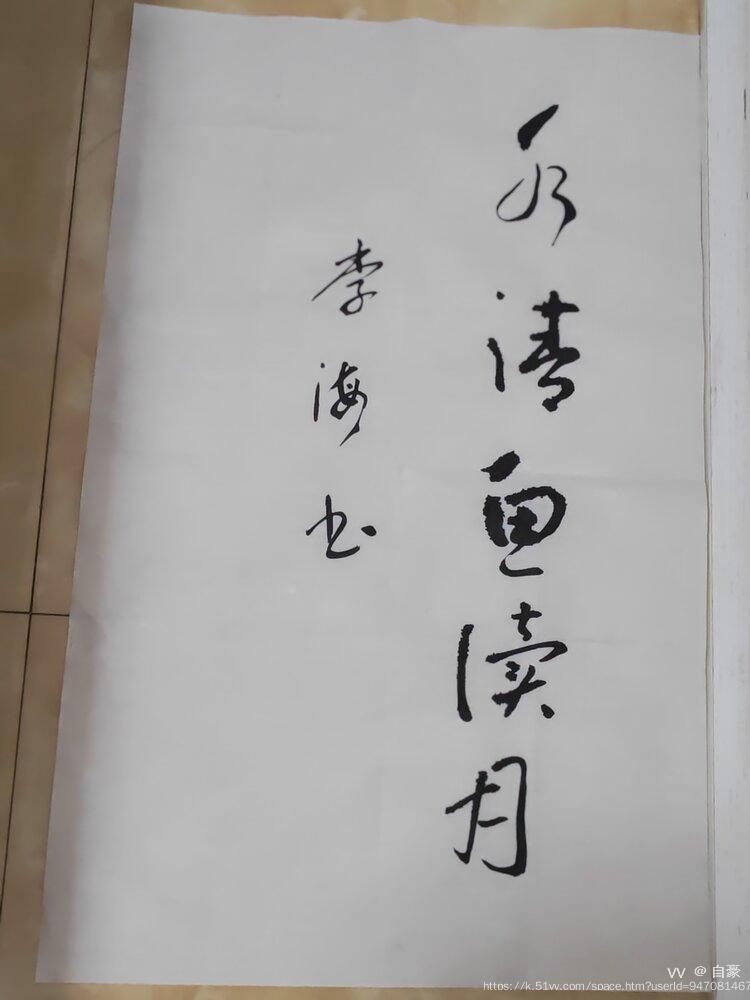 水清鱼读月
李海书
VV @ 自豪
https://k.51vv.com/space.htm?userId=947081467